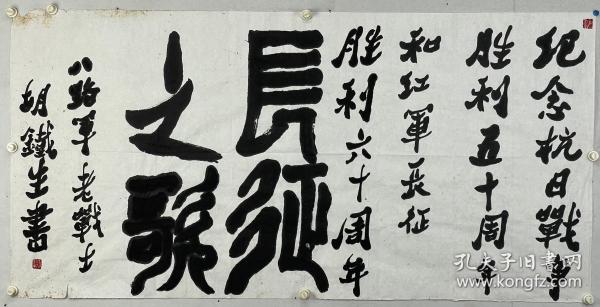 纪念抗日戰争
胜利五十周年
和红軍長征
胜利六十周年
長征
之歌
八路軍老戰士
胡鐵生書
孔夫子旧书网
www.kongfz.com